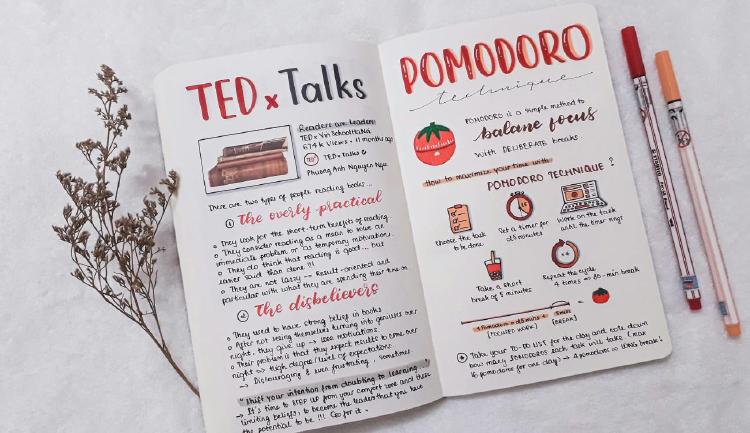 TED x Talks
Readers are leaders
TEDx Vin School Hanoi
674k Views • 11 months ago
TED TEDx Talks
Phuong Anh Nguyen Ngu
There are two types of people reading books...
1 The overly-practical
They look for the short-term benefits of reading.
They consider reading as a mean to solve an
immediate problem or as temporary motivations.
They do think that reading is good... but
easier said than done !!!
They are not lazy → Result-oriented and
particular with what they are spending their time on
2 The disbelievers
They used to have strong belief in books
After not seeing themselves turning into geniuses over
night, they give up → lose motivations.
Their problem is that they expect results to come over
night → High degree/level of expectations.
→ Discouraging & even frustrating, sometimes.
"Shift your intention from doubting to learning"
→ It's time to STEP up from your comfort zone and these
limiting beliefs, to become the leaders that you have
the potential to be !!! Go for it.
POMODORO
technique
POMODORO is a simple method to
balane focus
with DELIBERATE breaks.
How to maximize your time with
POMODORO TECHNIQUE ?
Choose the task
to be done.
Set a timer for
25 minutes
Work on the task
until the timer rings
Take a short
break of 5 minutes
Repeat the cycle
4 times → 30-min break
1 Pomodoro = 25mins + 5mins
[FOCUSED WORK] [BREAK]
Take your TO-DO LIST for the day and note down
how many POMODOROS each task will take (max
16 pomodoro for one day) → 4 pomodoros = LONG break!